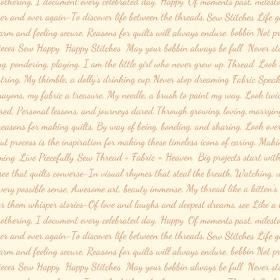 othering, I document every celebrated day. Happy Of moments past, milesto
er and over again-To discover life between the threads, Sew Stitches Life
arm and feeling secure. Reasons for quilts will always endure. bobbin Not
ieces Sew Happy Happy Stitches May your bobbin always be full Never st
g, pondering, playing. I am the little girl who never grew up. Thread Look
tring. My thimble, a dolly's drinking cup. Never stop dreaming Fabric Speak
rayons, my fabric a treasure. My needle, a brush to paint my way. Look twic
red. Personal lessons, and journeys dared. Through growing, loving, marryin
easons for making quilts. By way of being, bonding, and sharing. Look over
ut process is the inspiration for making these timeless icons of caring. Makin
ming Live Piecefully Sew Thread + Fabric = Heaven Big projects start with
ree that quilts converse-In visual rhymes that steal the breath. Watching,
very possible sense, Awesome art, beauty immense. My thread like a kitten's
r them whisper stories-Of love and laughs and deepest dreams, see Like a
othering, I document every celebrated day. Happy Of moments past, milesto
er and over again-To discover life between the threads, Sew Stitches Life
arm and feeling secure. Reasons for quilts will always endure. bobbin Not
ieces Sew Happy Happy Stitches May your bobbin always be full Never st